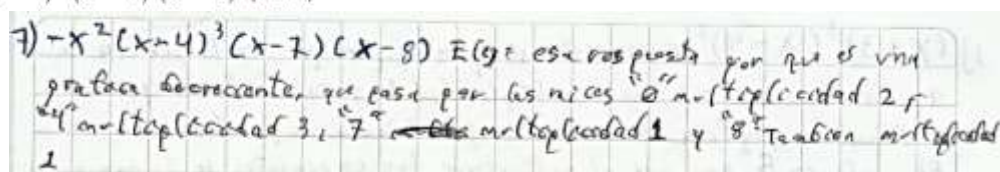 7) -x²(x-4)³(x-7)(x-8) Elgi esa respuesta por que es una
grafica decreciente, que pasa por las raices "0" multiplicidad 2,
"4" multiplicidad 3, "7" multiplicidad 1 y "8" Tambien multiplicidad
1